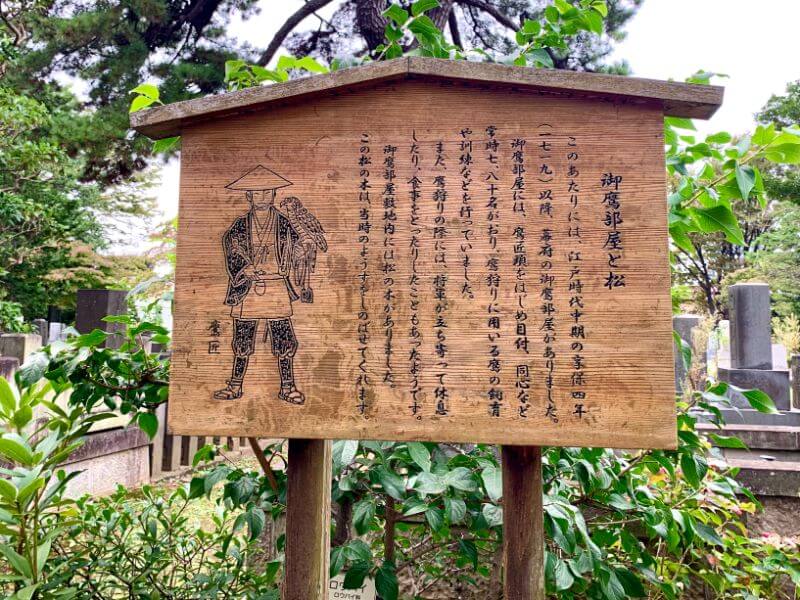 御鷹部屋と松
このあたりには、江戸時代中期の享保四年
(一七一九)以降、幕府の御鷹部屋がありました。
御鷹部屋には、鷹匠頭をはじめ目付、同心など
常時七、八十名がおり、鷹狩りに用いる鷹の飼育
や訓練などを行っていました。
また、鷹狩りの際には、将軍が立ち寄って休息
したり、食事をとったりしたこともあったようです。
御鷹部屋敷地内には松の木がありました。
この松の木は、当時のようすをしのばせてくれます。
鷹匠
ロウバイ